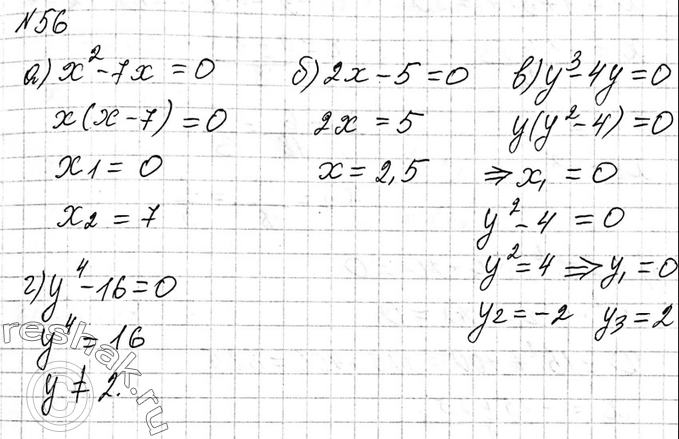 №56
а) x² - 7x = 0
x(x - 7) = 0
x1 = 0
x2 = 7
б) 2x - 5 = 0
2x = 5
x = 2,5
в) y³ - 4y = 0
y(y² - 4) = 0
⇒ x₁ = 0
y² - 4 = 0
y² = 4 ⇒ y₁ = 0
y2 = -2 y3 = 2
г) y⁴ - 16 = 0
y⁴ = 16
y ≠ 2.
reshak.ru